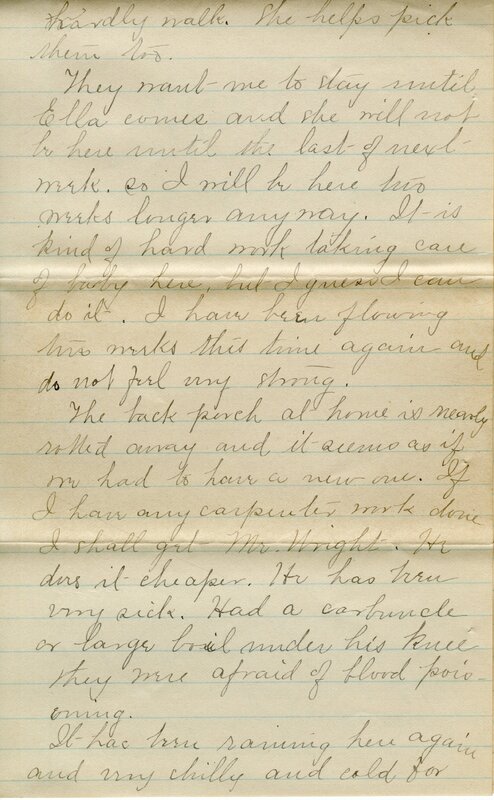 hardly walk. She helps pick
them too.
They want me to stay until
Ella comes and she will not
be here until the last of next
week. so I will be here two
weeks longer anyway. It is
kind of hard work taking care
of baby here, but I guess I can
do it. I have been flowing
two weeks this time again and
do not feel very strong.
The back porch at home is nearly
rotted away and it seems as if
we had to have a new one. If
I have any carpenter work done
I shall get Mr. Wright. He
does it cheaper. He has been
very sick. Had a carbuncle
or large boil under his knee
they were afraid of blood pois-
oning.
It has been raining here again
and very chilly and cold for